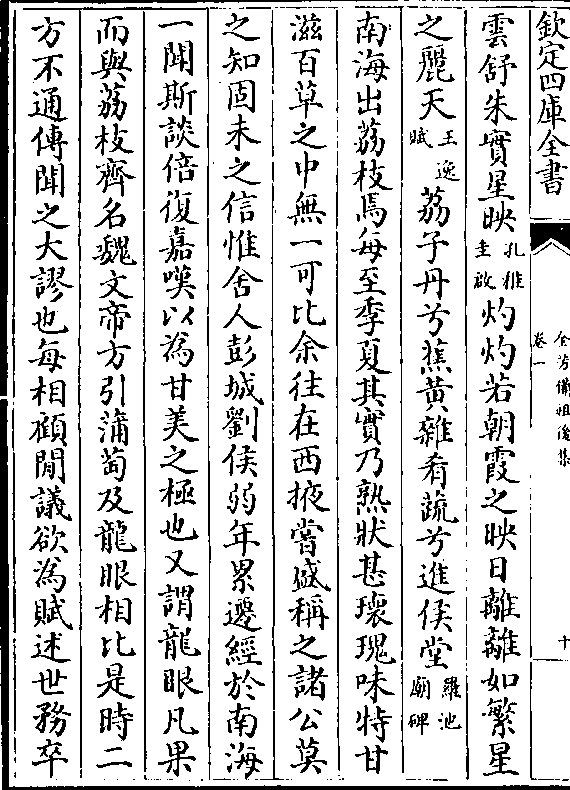 欽定四庫全書
全芳備祖後集
卷一
十
雲舒朱實星映孔稚圭啟灼灼若朝霞之映日離離如繁星
之麗天王逸賦荔子丹兮蕉黃雜肴蔬兮進侯堂羅池廟碑
南海出荔枝焉每至季夏其實乃熟狀甚瓌瑰味特甘
滋百草之中無一可比余往在西掖嘗盛稱之諸公莫
之知固未之信惟舍人彭城劉侯弱年累遷經於南海
一聞斯談倍復嘉嘆以為甘美之極也又謂龍眼凡果
而與荔枝齊名魏文帝方引蒲萄及龍眼相比是時二
方不通傳聞之大謬也每相顧閒議欲為賦述世務卒